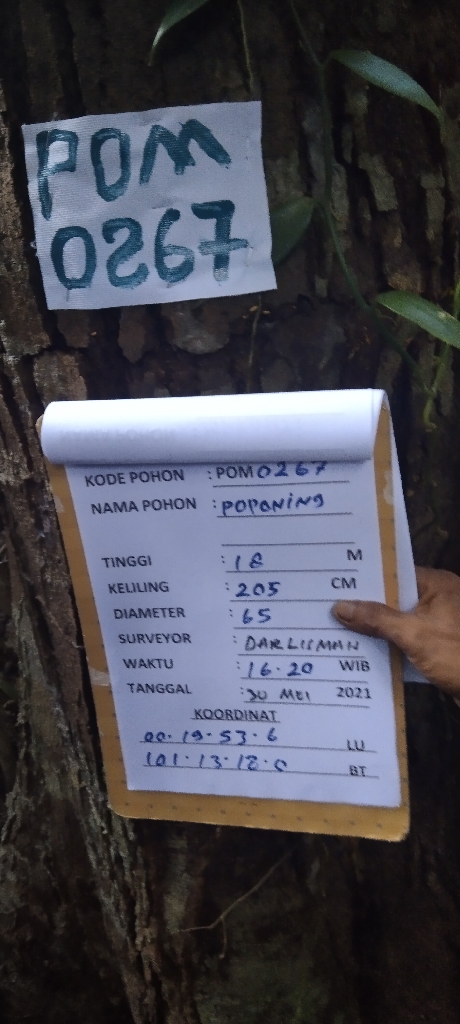 POM
0267
KODE POHON : POM0267
NAMA POHON : POPONING
TINGGI : 18 M
KELILING : 205 CM
DIAMETER : 65
SURVEYOR : DARLISMAN
WAKTU : 16.20 WIB
TANGGAL : 30 MEI 2021
KOORDINAT
00.19.53.6 LU
101.13.12.0 BT